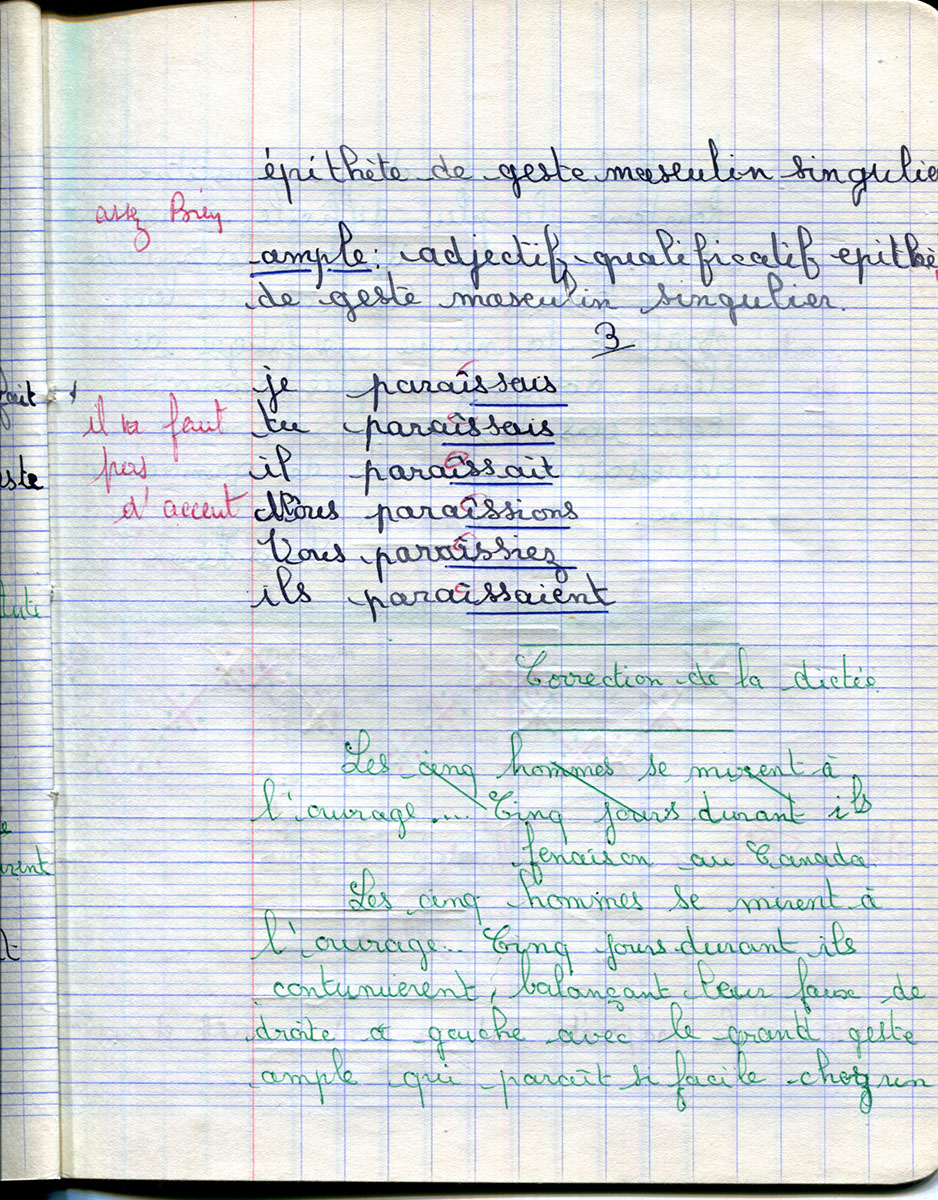 épithète de geste masculin singulie
assez Bien
ample : adjectif qualificatif epithè
de geste masculin singulier.
3
je paraîssais
tu paraîssais
il paraîssait
Nous paraîssions
Vous paraîssiez
ils paraîssaient
il ne faut
pas
d'accent
Correction de la dictée
Les cinq hommes se mirent à
l'ouvrage.... Cinq jours durant ils
fenaison au Canada
Les cinq hommes se mirent à
l'ouvrage... Cinq jours durant ils
continuèrent, balançant leur faux de
droite à gauche avec le grand geste
ample qui paraît si facile chez un
fait
ste
rent